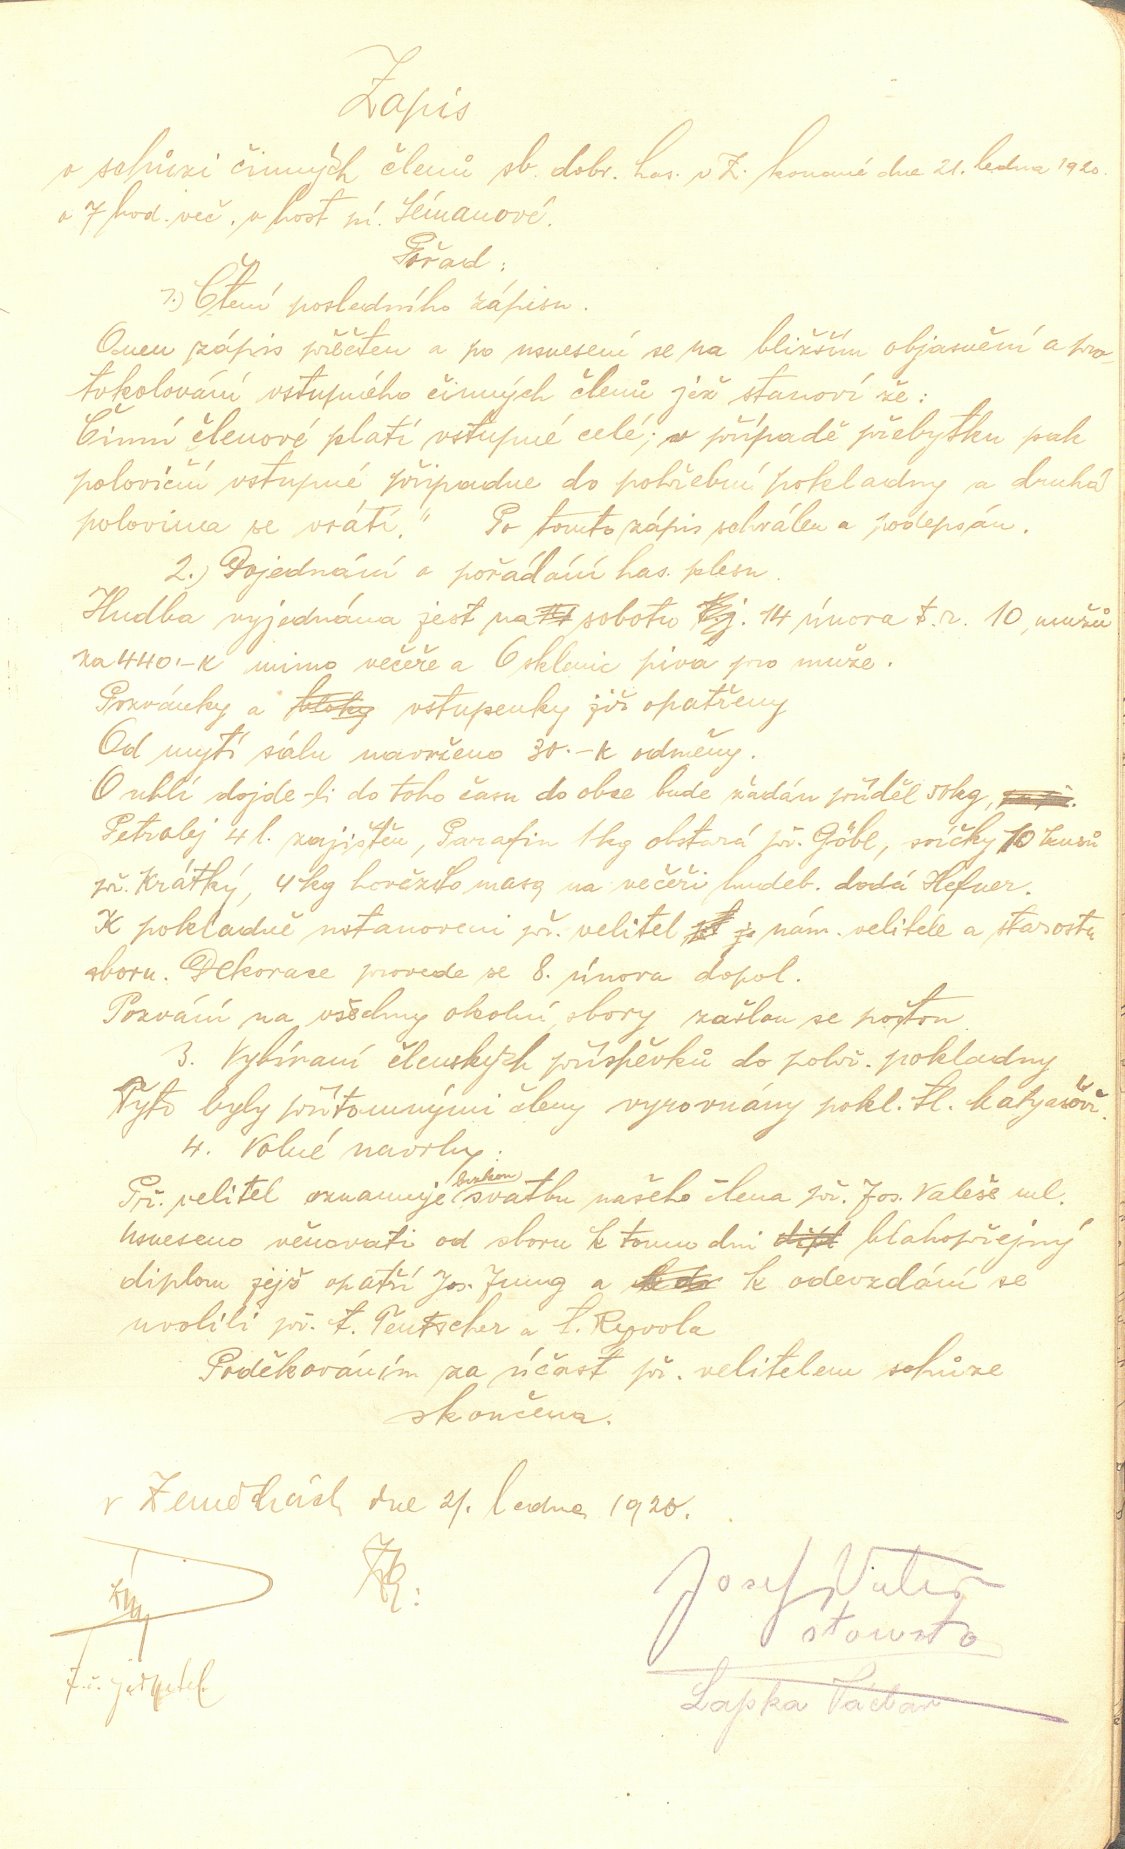 Zápis
o schůzi činných členů sb. dobr. has. v Z. konané dne 21. ledna 1920.
o 7 hod. več. v host pí. Lémanové.
Pořad:
1.) Čtení posledního zápisu.
Onen zápis přečten a po usnesení se na bližším objasnění a pro-
tokolování vstupného činných členů jež stanoví že:
Činní členové platí vstupné celé; v případě přebytku pak
poloviční vstupné připadne do pohřební pokladny a druhá
polovina se vrátí." Po tomto zápis schválen a podepsán.
2.) Pojednání o pořádání has. plesu.
Hudba vyjednána jest na sobotu tj. 14 února t.r. 10 mužů
za 440.-K mimo večeře a 6 sklenic piva pro muže.
Pozvánky a bloky vstupenky již opatřeny
Od mytí sálu navrženo 30.-K odměny.
O uhlí dojde-li do toho času do obce bude žádán příděl 50kg,
Petrolej 4 l. zajištěn, Parafin 1kg obstará př. Göbl, svíčky 10 kusů
př. Krátký, 4kg hovězího masa na večeři hudeb. dodá Hefner.
K pokladně ustanoveni př. velitel nám. velitele a starosta
sboru. Dekorace provede se 8. února dopol.
Pozvání na všechny okolní sbory zašlou se poštou
3. Vybíraní členských příspěvků do pohř. pokladny
Tyto byly přítomnými členy vyrovnány pokl. tl.
4. Volné navrhy:
Př. velitel oznamuje svatbu našeho člena př. Jos. Valeše ml.
Usneseno věnovati od sboru k tomu dni dipl blahopřejný
diplom jejž opatří Jos. Jung a k odevzdání se
uvolili př. t. Teutscher a t. Ryvola
Poděkováním za účast př. velitelem schůze
skončena.
v Zeměchách dne 21. ledna 1920.
Josef
starosta
Lapka Václav
t. č. jednatel